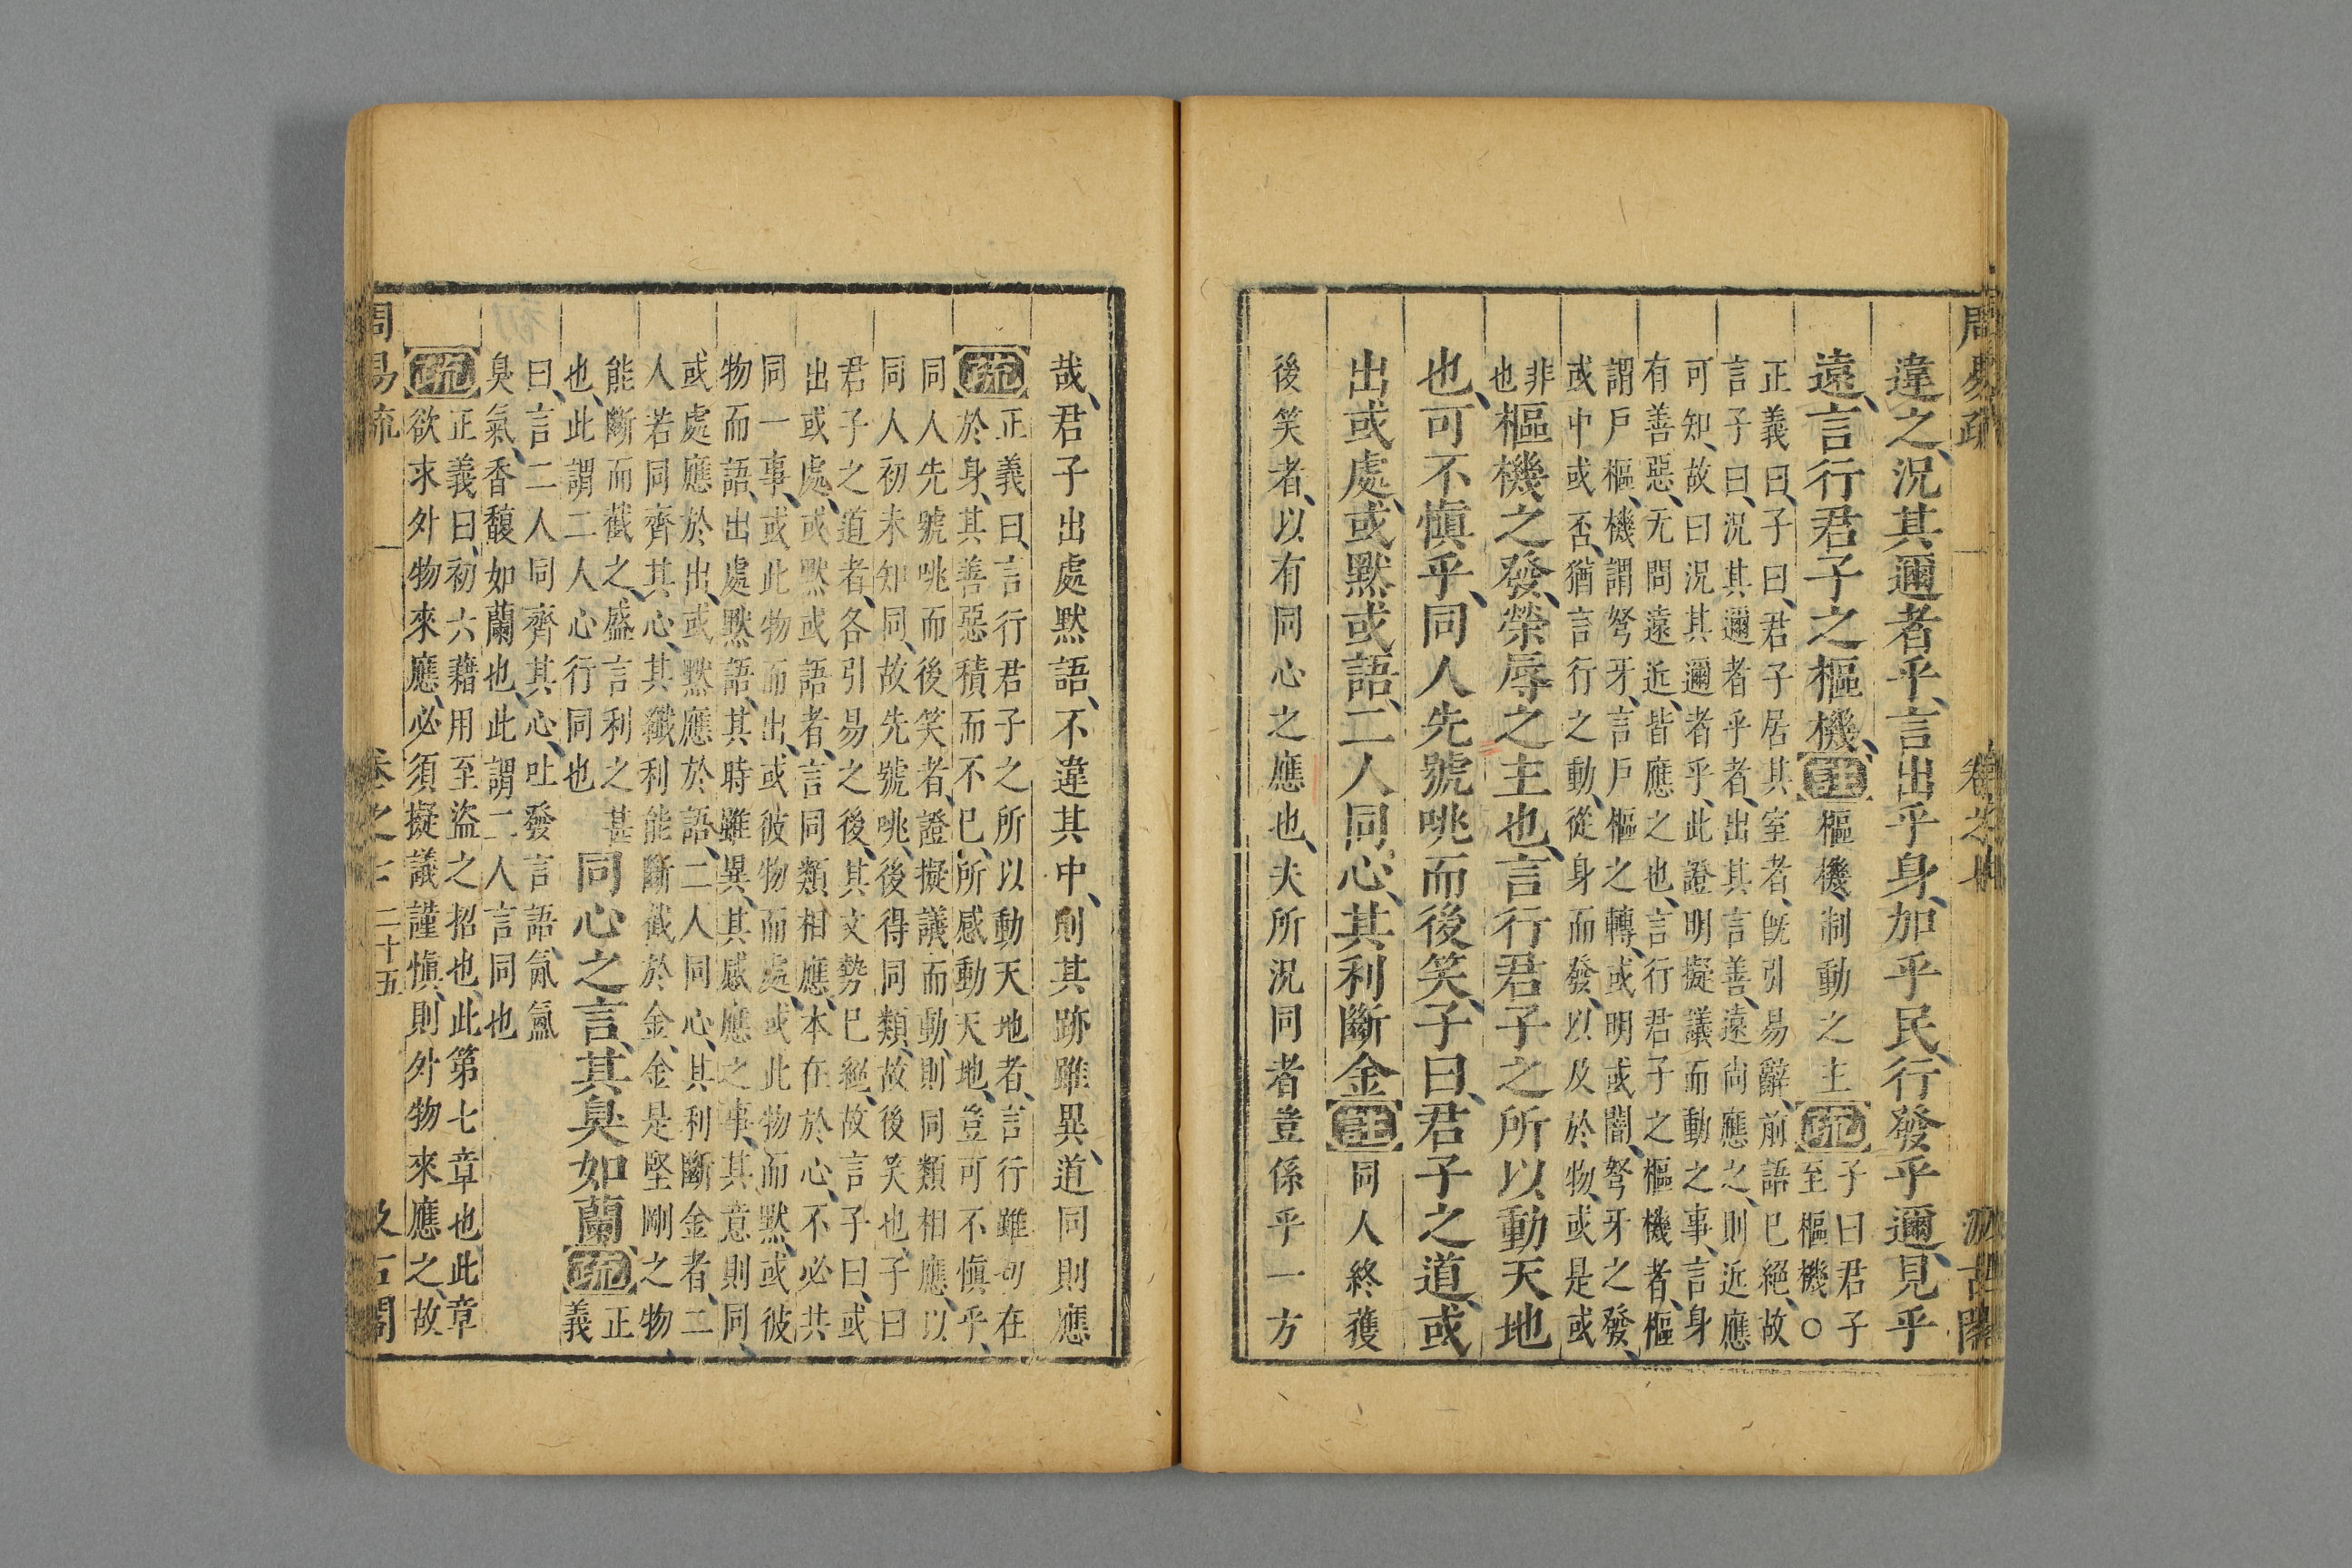 周易疏 卷之七 汲古閣
違之、況其邇者乎、言出乎身、加乎民、行發乎邇、見乎
遠、言行君子之樞機、註樞機、制動之主疏子曰君子
至樞機○
正義曰、子曰、君子居其室者、旣引易辭、前語已絕、故
言子曰、況其邇者乎者、出其言善、遠尚應之、則近應
可知、故曰況其邇者乎、此證明擬議而動之事、言身
有善惡、无問遠近、皆應之也、言行君子之樞機者、樞
謂戶樞、機謂弩牙、言戶樞之轉、或明或闇、弩牙之發、
或中或否、猶言行之動、從身而發、以及於物、或是或
非
也樞機之發、榮辱之主也、言行君子之所以動天地
也、可不愼乎、同人先號咷而後笑、子曰、君子之道、或
出或處、或默或語、二人同心、其利斷金註同人終獲
後笑者、以有同心之應也、夫所況同者豈係乎一方
哉、君子出處默語、不違其中、則其跡雖異、道同則應
疏正義曰、言行君子之所以動天地者、言行雖初在
於身、其善惡積而不已、所感動天地、豈可不愼乎、
同人先號咷而後笑者、證擬議而動、則同類相應、以
同人初未知同、故先號咷、後得同類、故後笑也、子曰
君子之道者、各引易之後、其文勢已絕、故言子曰、或
出或處、或默或語者、言同類相應、本在於心、不必共
同一事、或此物而出、或彼物而處、或此物而默、或彼
物而語、出處默語、其時雖異、其感應之事、其意則同、
或處應於出、或默應於語、二人同心、其利斷金者、二
人若同齊其心、其纖利能斷截於金、金是堅剛之物、
能斷而截之、盛言利之甚
也、此謂二人心行同也同心之言、其臭如蘭疏正
義
曰、言二人同齊其心、吐發言語、氤氳
臭氣、香馥如蘭也、此謂二人言同也
疏正義曰、初六藉用至盜之招也、此第七章也此章
欲求外物來應、必須擬議謹愼、則外物來應之、故
周易疏 卷之七 二十五 汲古閣